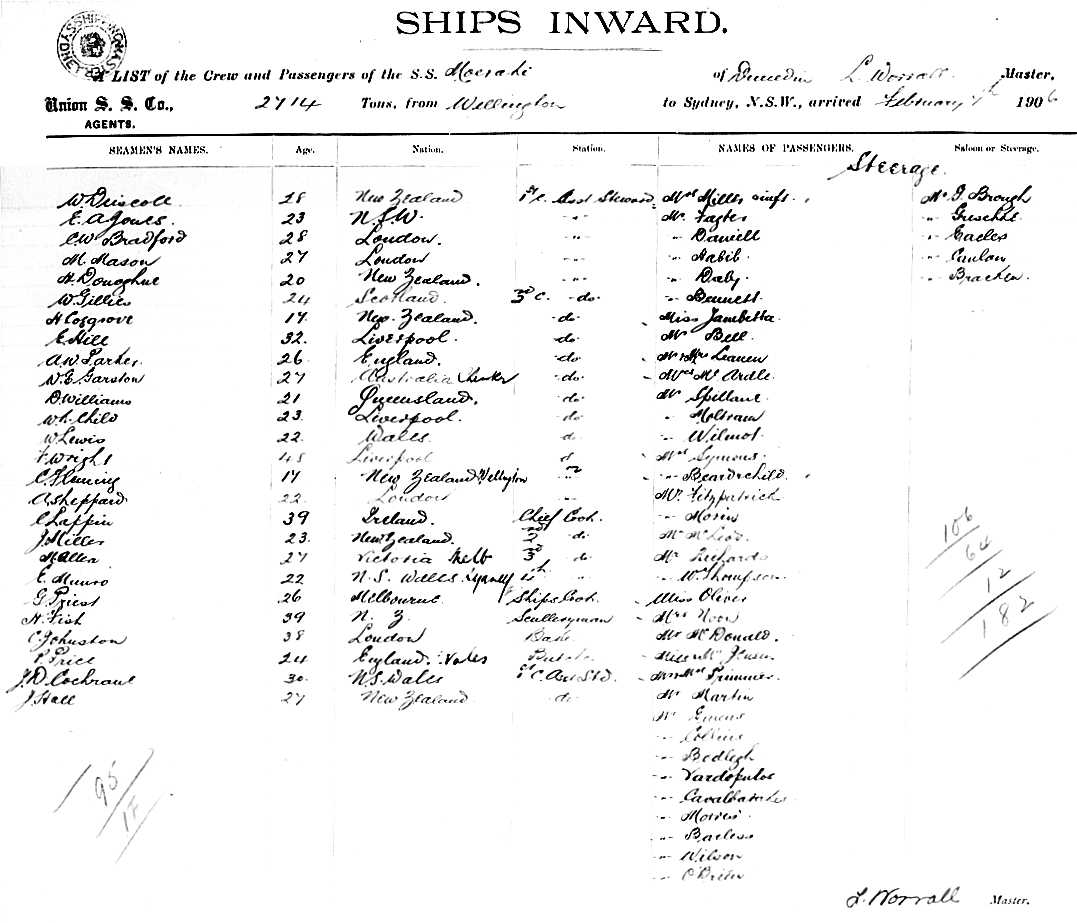 SHIPS INWARD.
A LIST of the Crew and Passengers of the S.S. Moeraki of Dunedin L. Worrall Master,
Union S. S. Co., 2714 Tons, from Wellington to Sydney, N.S.W., arrived February 7th 1906
AGENTS.
SEAMEN'S NAMES. Age. Nation. Station. NAMES OF PASSENGERS. Saloon or Steerage.
Steerage.
W Driscoll 28 New Zealand 1st C. Asst Steward Mrs Miller Mr J Brough
E. A Jones. 23 N.S.W. " Mr "
C. W Bradford 28 London. " " Daniell " Eacles
M. Mason 27 London " " Habib "
H. Donoghue 20 New Zealand. " " Daly " Bracken
W. Gillies 24 Scotland. 3rd C. do. " Bennett.
H Cosgrove 17 New Zealand. do Miss
E. Hill 32. Liverpool. do Mr Bell
A. W. Parker 26 England. do
W. E. Garston 27 Australia do Mrs Mc Ardle
D. Williams 21 Queensland. do Mr Spillane
W. R. Child 23. Liverpool. do " Mottram
W Lewis 22. Wales d " Wilmot
F. Wright 48 Liverpool d Mrs Symons
C Fleming 17 New Zealand Wellington " "
A. Sheppard 22. London " Mr Fitzpatrick
C Lappin 39 Ireland. Chief Cook. "
J. Miller 23. New Zealand. 2nd do Mr
M Allen 27 Victoria Melb 3rd do Mr Richards
E. Munro 22 N.S. Wales Sydney 4th " " W. Thompson
G. Priest 26 Melbourne Ships Cook. Miss Oliver
H. Fish 39 N. Z. Sculleryman Mrs Noon
C. Johnston 38 London Mr Mc Donald.
P. Price 24 England.
J. D Cochrane 30. N S. Wales 1st C. Asst Std. Trimmer
J. Hall 27 New Zealand do Mr Martin
Mr
" Collins
"
" Vardopulos
"
" Morris
"
" Wilson
" O'Brien
106
64
12
182
95
17
L. Worrall Master.